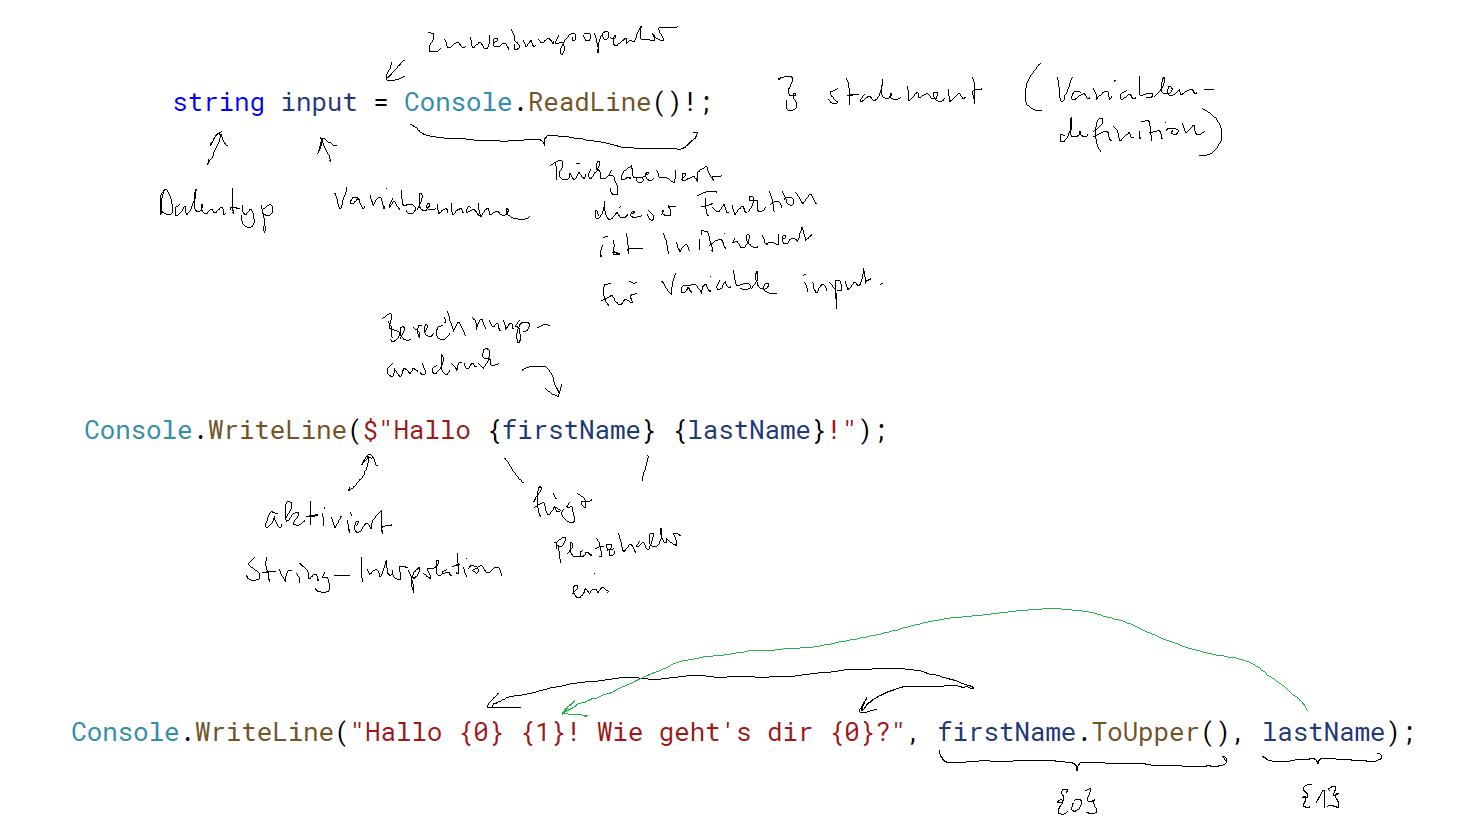 Zuweisungsoperator
string input = Console.ReadLine()!;
} statement (Variablen-
definition)
Datentyp
Variablenname
Rückgabewert
dieser Funktion
ist Initialwert
für Variable input.
Berechnungs-
ausdruck
Console.WriteLine($"Hallo {firstName} {lastName}!");
aktiviert
String-Interpolation
fügt
Platzhalter
ein
Console.WriteLine("Hallo {0} {1}! Wie geht's dir {0}?", firstName.ToUpper(), lastName);
{0}
{1}